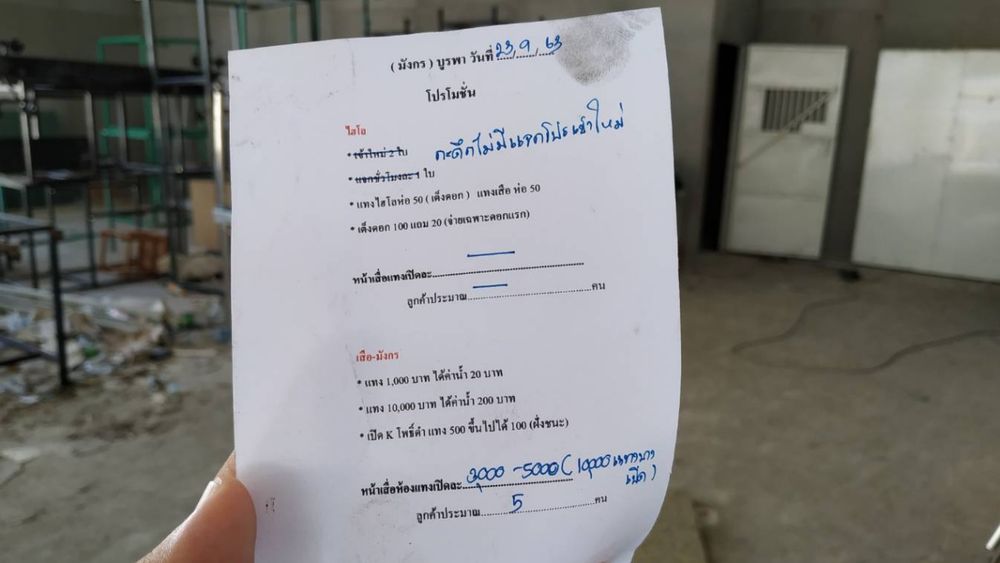 ( มังกร ) บูรพา วันที่ 23/9/63
โปรโมชั่น
ไฮโล
• เข้าใหม่ 2 ใบ
กะดึกไม่มีแจกโปรเข้าใหม่
• แจกชั่วโมงละ 1 ใบ
• แทงไฮโลห่อ 50 ( เต็งดอก ) แทงเสือ ห่อ 50
• เต็งดอก 100 แถม 20 (จ่ายเฉพาะดอกแรก)
หน้าเสื่อแทงเปิดละ.......... — ..........
ลูกค้าประมาณ.......... — ..........คน
เสือ-มังกร
• แทง 1,000 บาท ได้ค่าน้ำ 20 บาท
• แทง 10,000 บาท ได้ค่าน้ำ 200 บาท
• เปิด K โพธิ์ดำ แทง 500 ขึ้นไปได้ 100 (ฝั่งชนะ)
หน้าเสื่อห้องแทงเปิดละ 3,000 - 5000 ( 10,000 แทงบาง
เปิด )
ลูกค้าประมาณ..........5..........คน